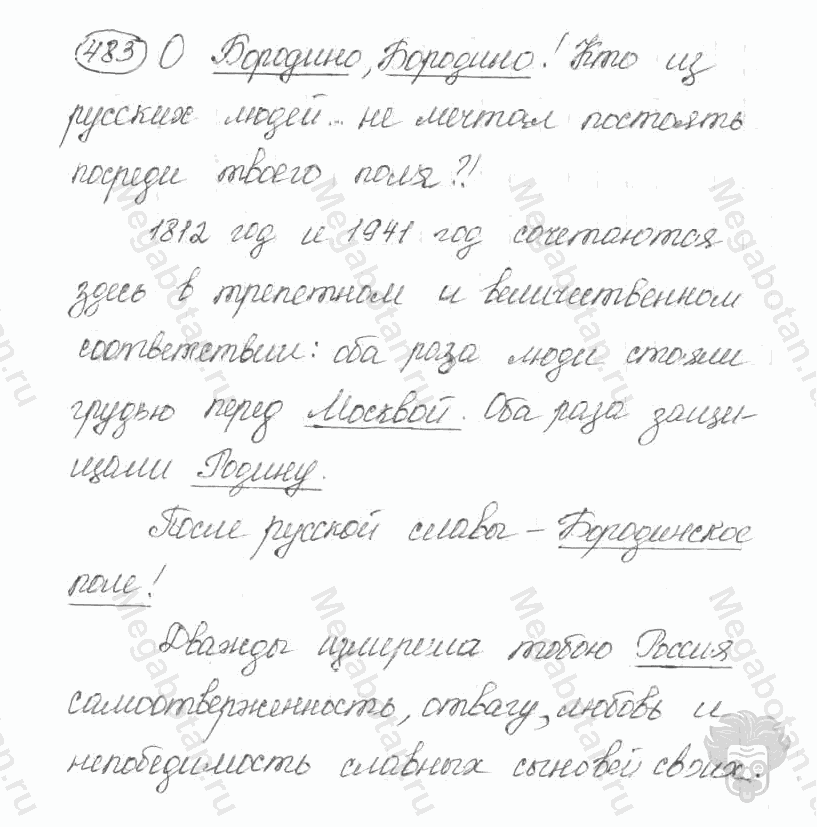 483 О Бородино, Бородино! Кто из
русских людей.. не мечтал постоять
посреди твоего поля?!
1812 год и 1941 год сочетаются
здесь в трепетном и величественном
соответствии: оба раза люди стояли
грудью перед Москвой. Оба раза защи-
щали Родину.
После русской славы – Бородинское
поле!
Дважды измерила тобою Россия
самоотверженность, отвагу, любовь и
непобедимость славных сыновей своих.
Megabotan.ru